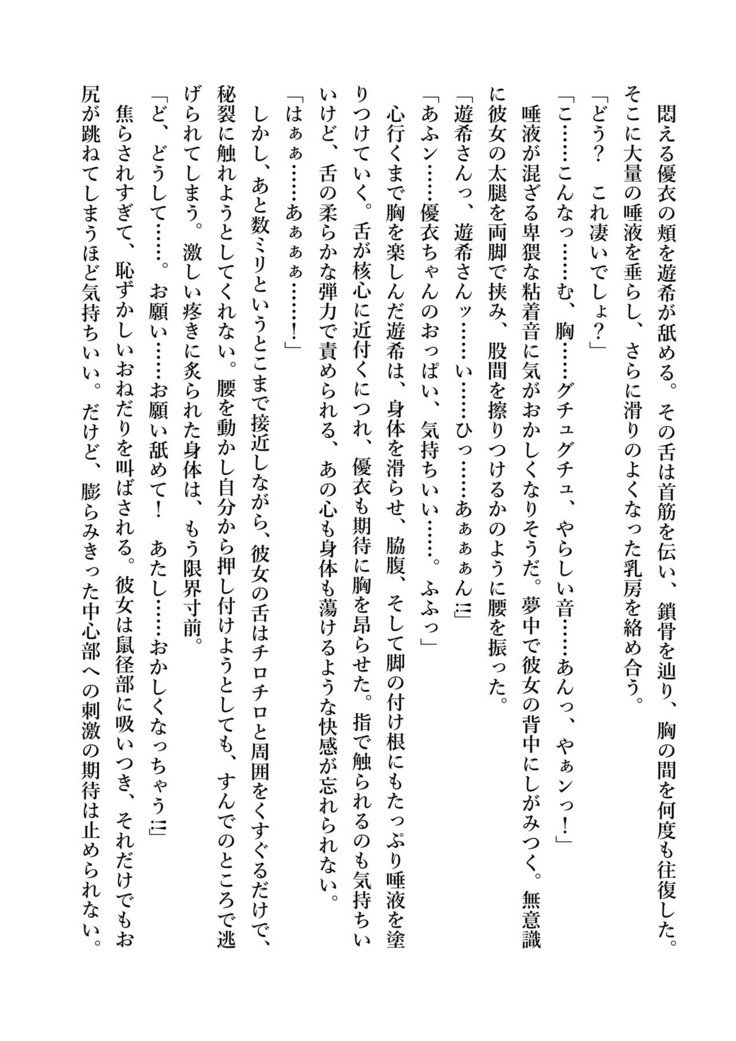 悶える優衣の頬を遊希が舐める。その舌は首筋を伝い、鎖骨を辿り、胸の間を何度も往復した。
そこに大量の唾液を垂らし、さらに滑りのよくなった乳房を絡め合う。
「どう？　これ凄いでしょ？」
「こ……こんなっ……む、胸……グチュグチュ、やらしい音……あんっ、やぁンっ！」
　唾液が混ざる卑猥な粘着音に気がおかしくなりそうだ。夢中で彼女の背中にしがみつく。無意識
に彼女の太腿を両脚で挟み、股間を擦りつけるかのように腰を振った。
「遊希さんっ、遊希さんッ……い……ひっ……あぁぁぁん!!」
「あふン……優衣ちゃんのおっぱい、気持ちいい……。ふふっ」
　心行くまで胸を楽しんだ遊希は、身体を滑らせ、脇腹、そして脚の付け根にもたっぷり唾液を塗
りつけていく。舌が核心に近付くにつれ、優衣も期待に胸を昂らせた。指で触られるのも気持ちい
いけど、舌の柔らかな弾力で責められる、あの心も身体も蕩けるような快感が忘れられない。
「はぁぁ……あぁぁぁ……！」
　しかし、あと数ミリというとこまで接近しながら、彼女の舌はチロチロと周囲をくすぐるだけで、
秘裂に触れようとしてくれない。腰を動かし自分から押し付けようとしても、すんでのところで逃
げられてしまう。激しい疼きに炙られた身体は、もう限界寸前。
「ど、どうして……。お願い……お願い舐めて！　あたし……おかしくなっちゃう!!」
　焦らされすぎて、恥ずかしいおねだりを叫ばされる。彼女は鼠径部に吸いつき、それだけでもお
尻が跳ねてしまうほど気持ちいい。だけど、膨らみきった中心部への刺激の期待は止められない。